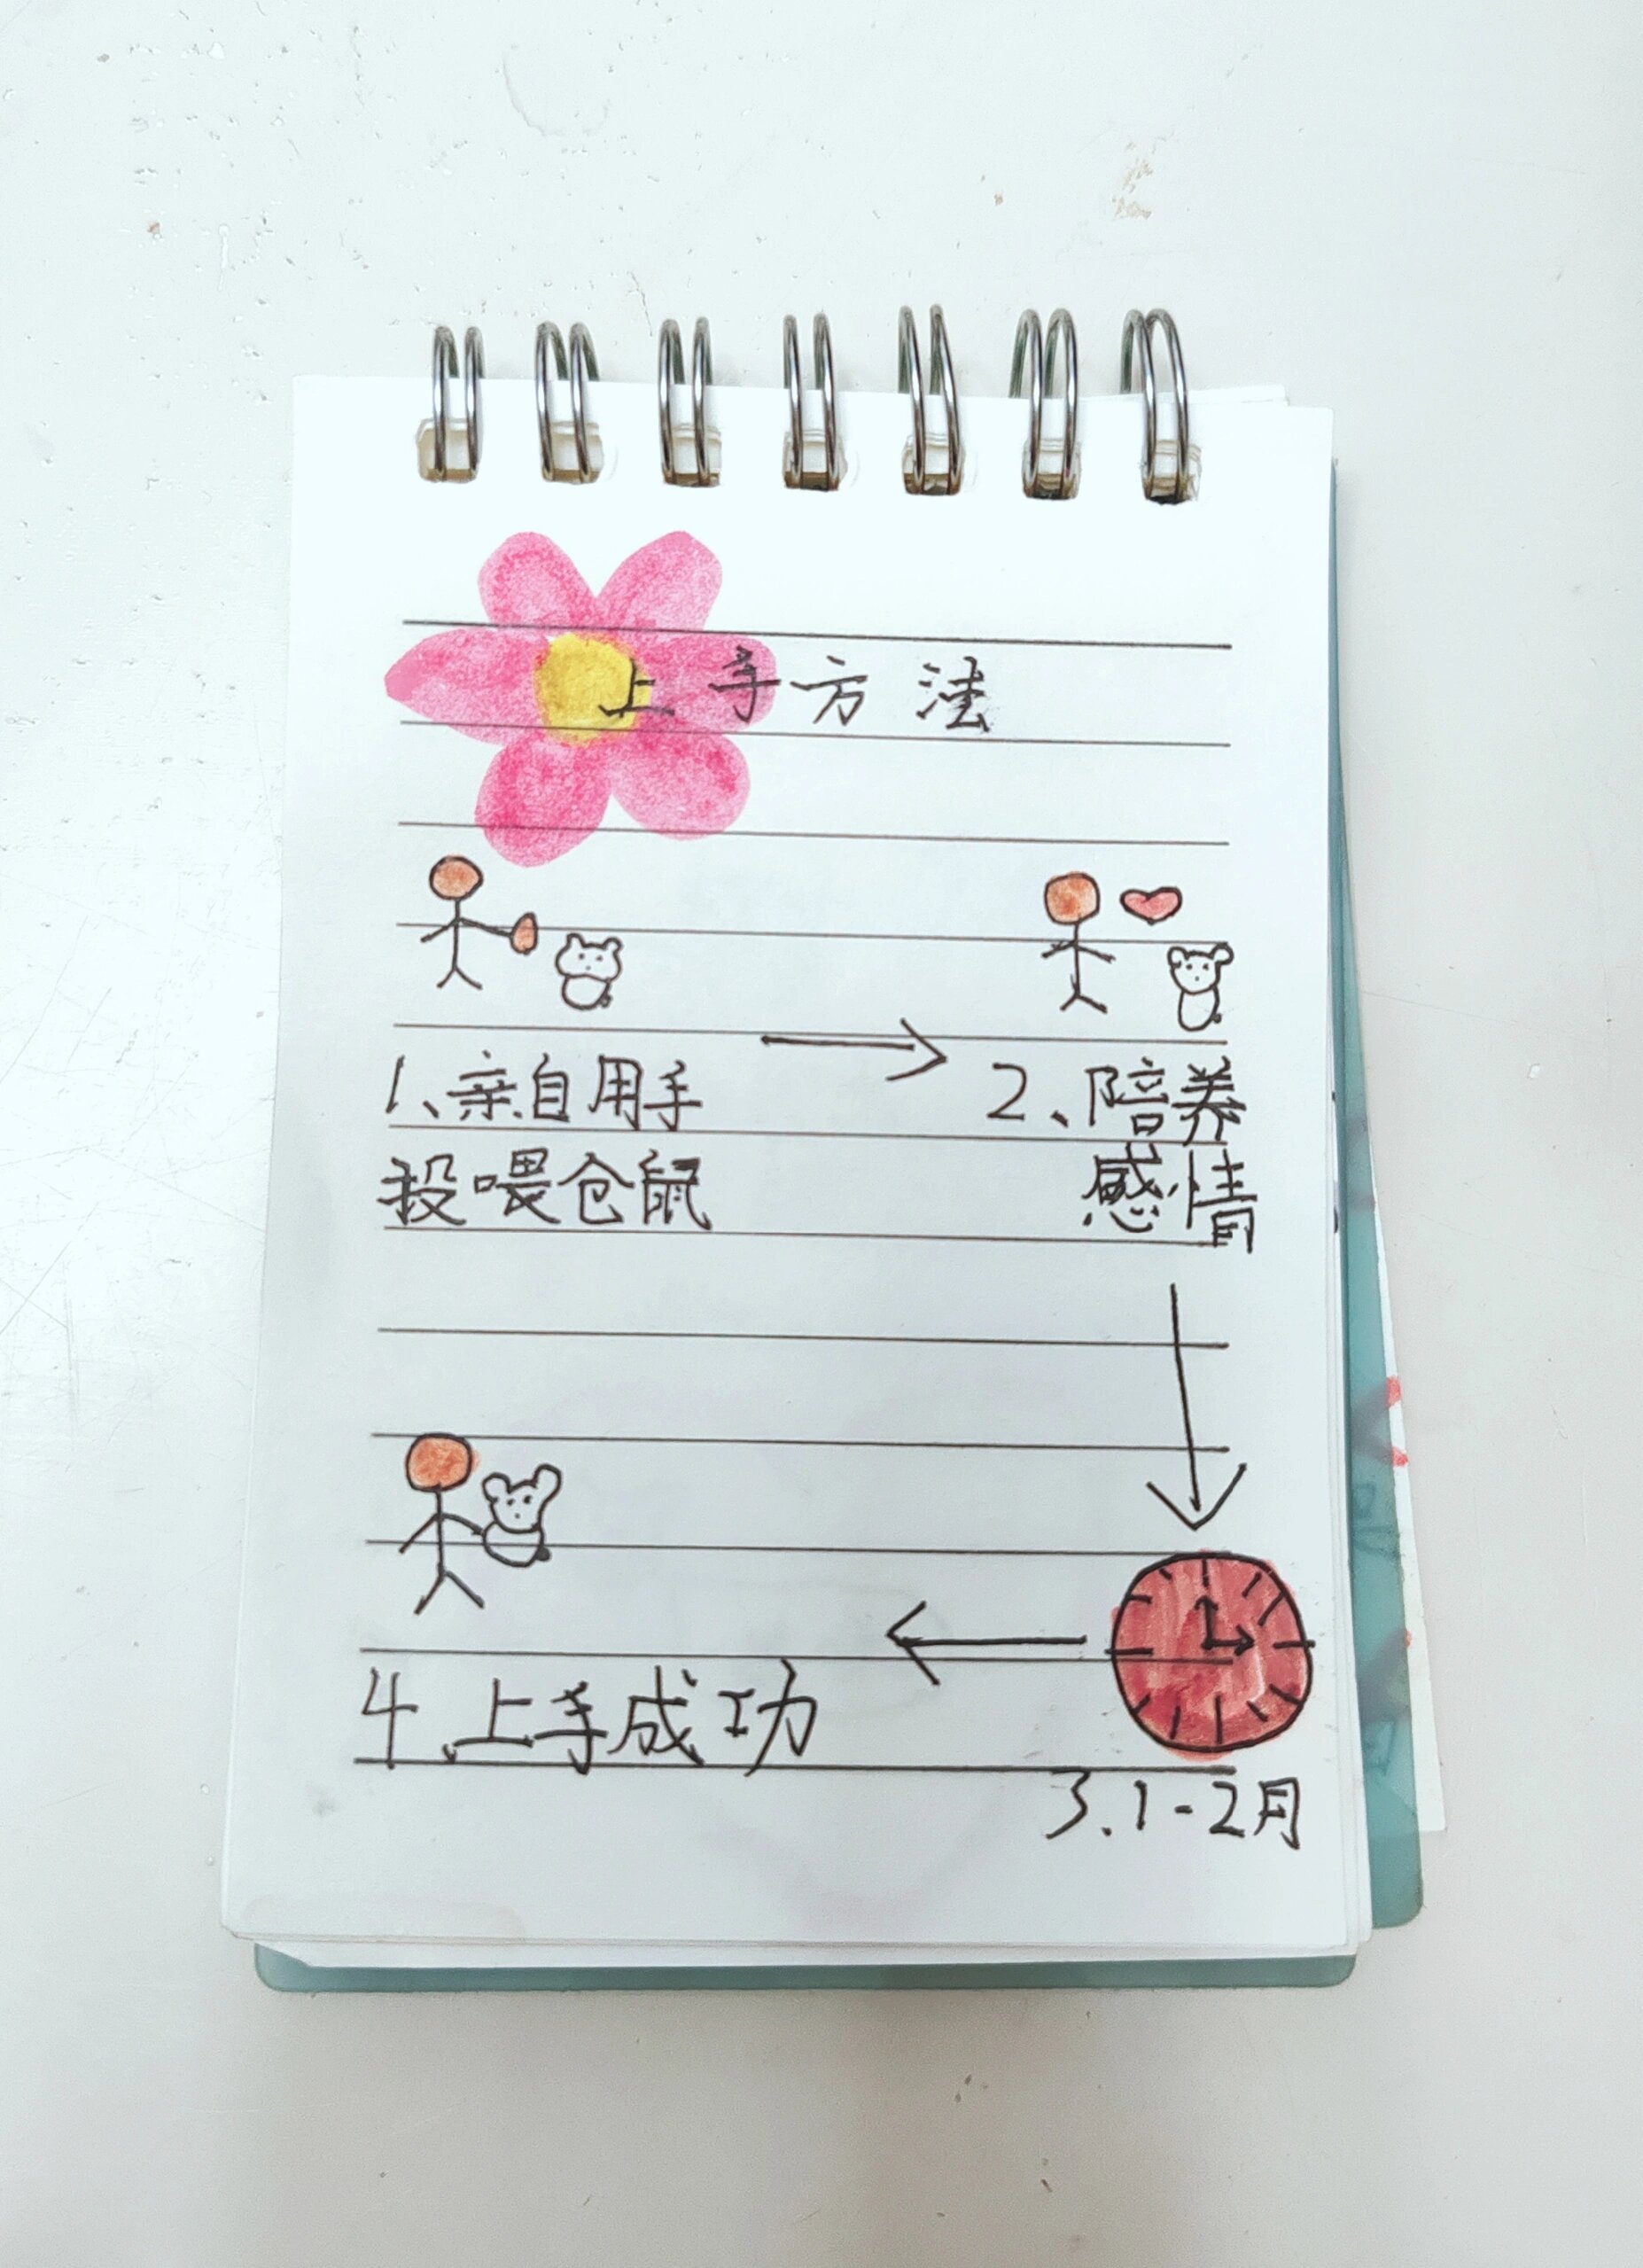 上手方法
1、亲自用手
投喂仓鼠
2、陪养
感情
3.1-2月
4、上手成功